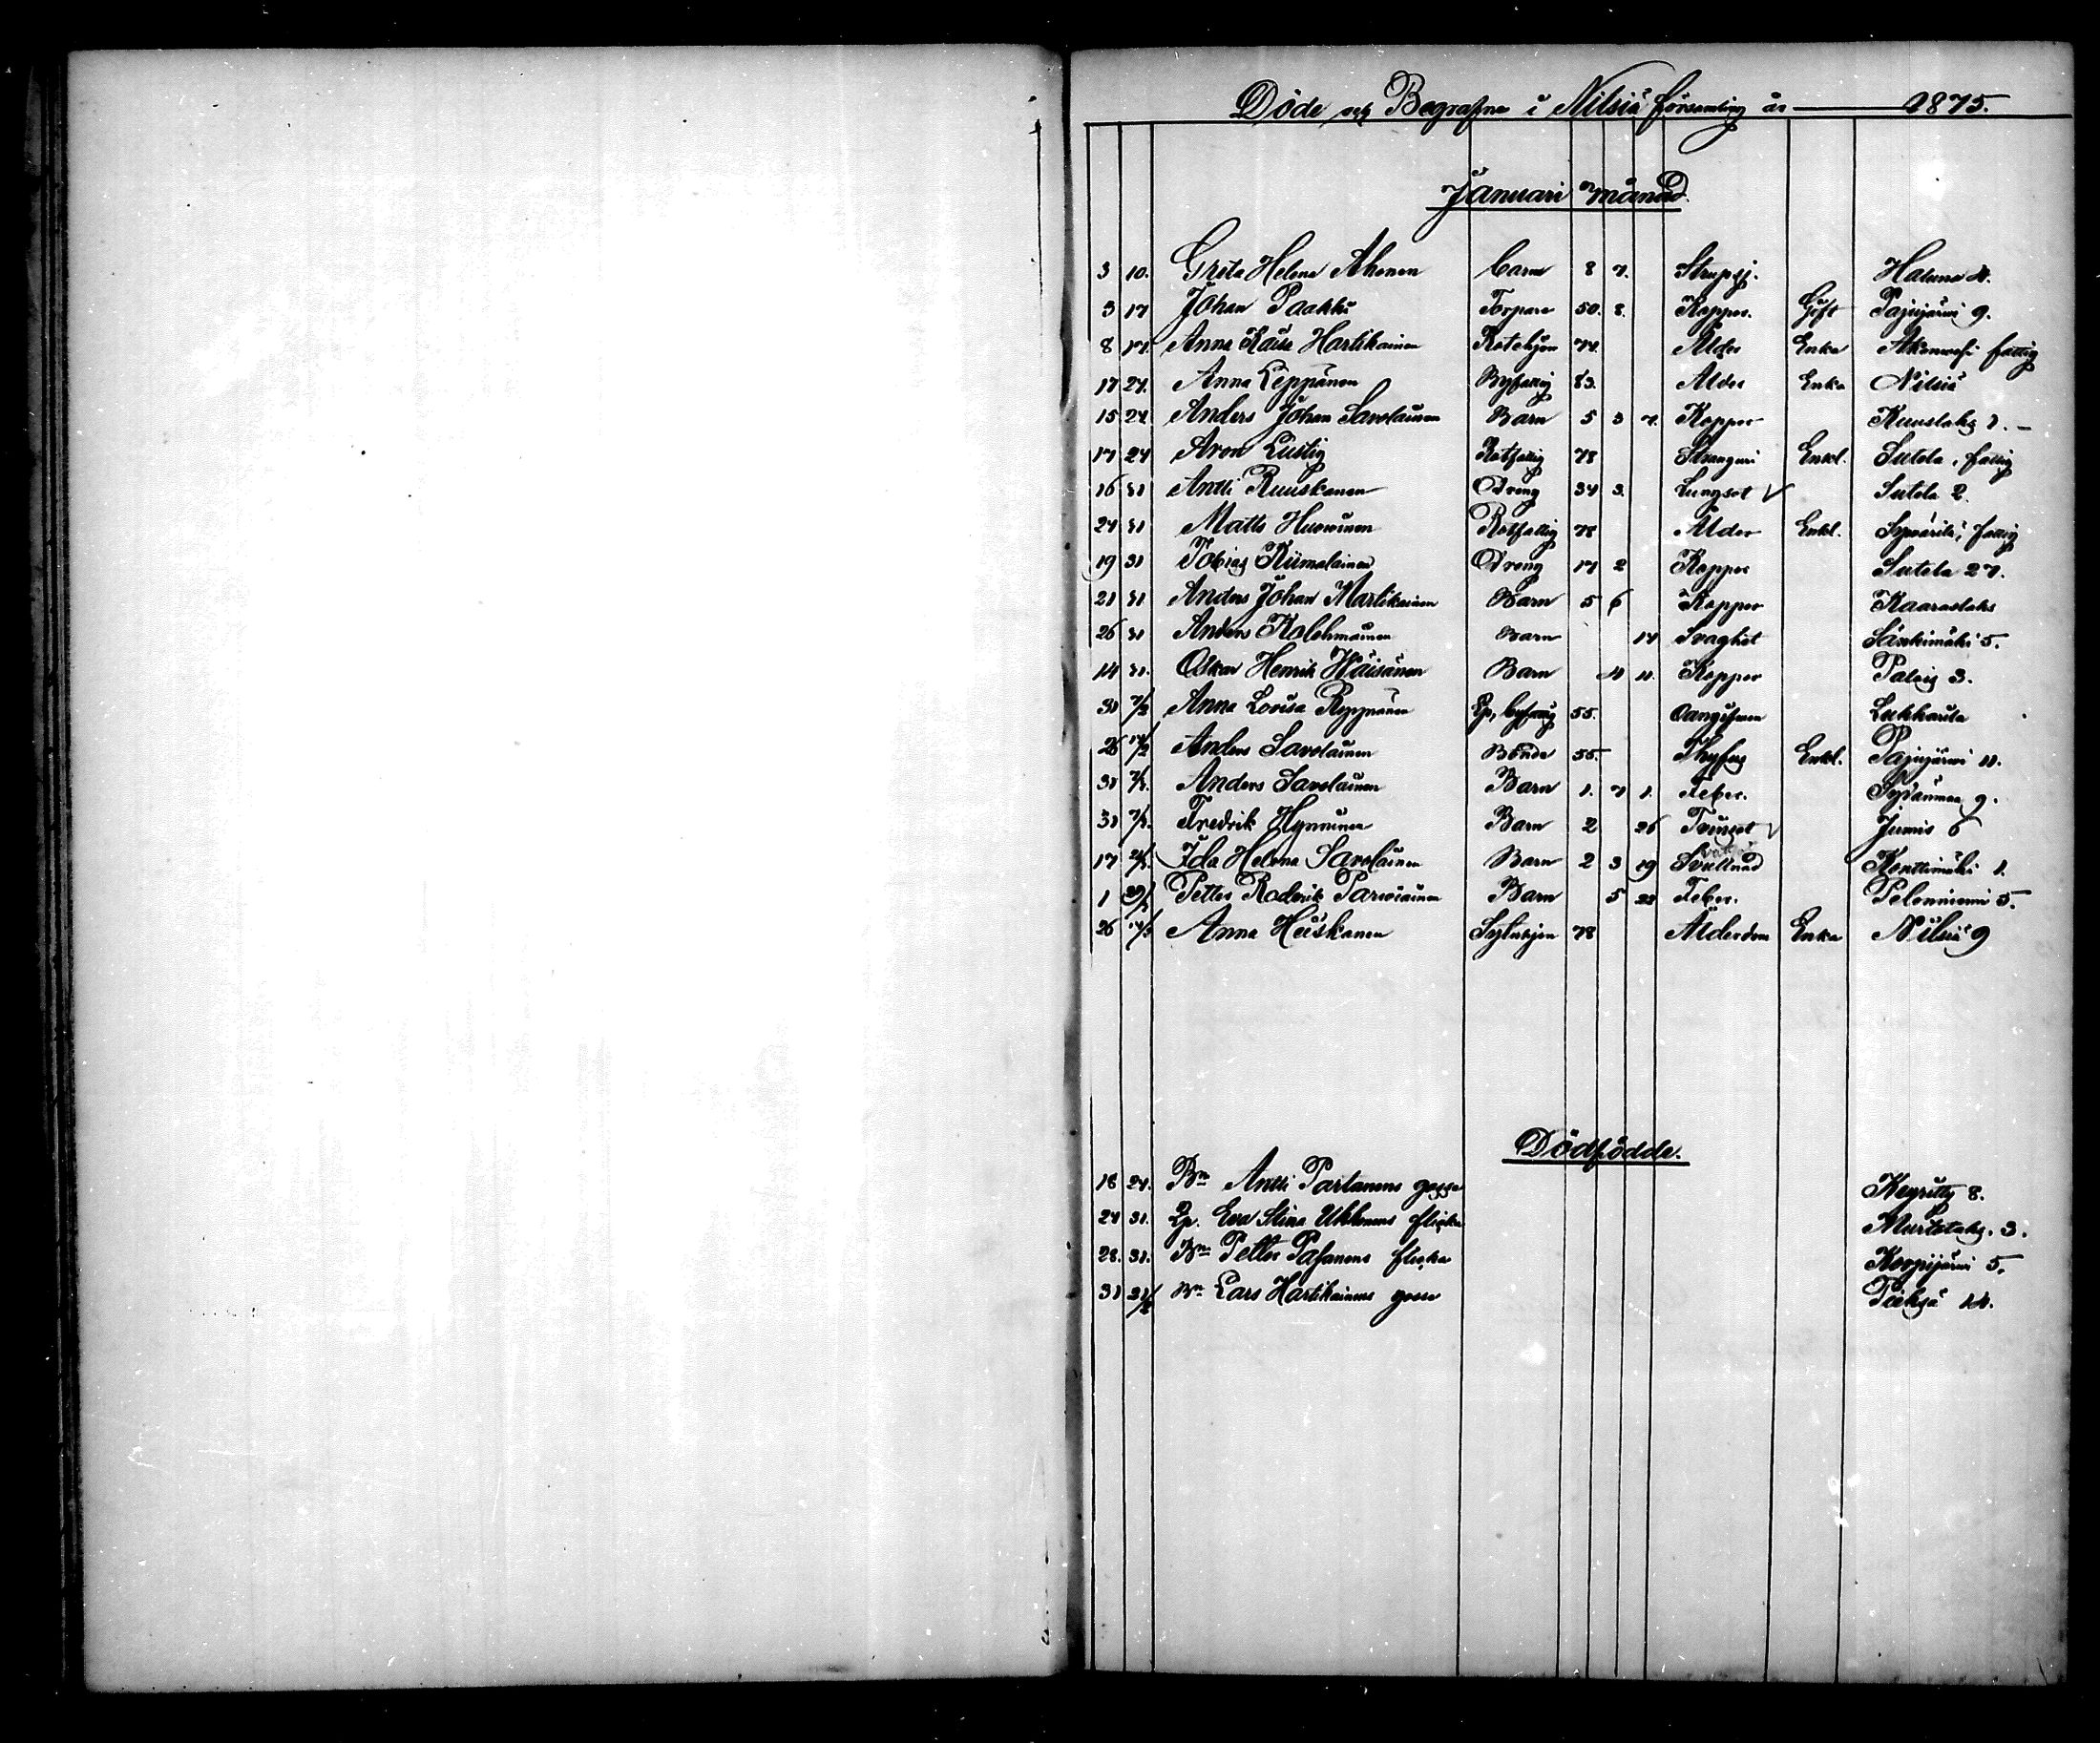 Döde och Begrafne i Nilsiä församling år 1875.
Januari månad.
3 10. Greta Helena Ahonen barn 8 7. Strupsj. Haluna
3 17 Johan Paakki Torpare 50. 8. Koppor. Gift Pajujärvi 9.
8 17. Anna Kaisa Hartikainen Rotehjon 74. Ålder Enka Akonvesi fattig
17 24. Anna Leppänen Byfattig 83. Ålder Enka Nilsiä
15 24 Anders Johan Savolainen Barn 5 3 7. Koppor Kuuslaks 1.
17 24 Aron Lustig Rotfattig 78 Stranguri Enkl. Sutela, fattig
16 31 Antti Ruuskanen Dreng 34 3. Lungsot Sutela 2.
24 31 Matts Huovinen Rotfattig 78 Ålder Enkl. Syvärilä, fattig
19 31 Tobias Riimalainen Dreng 17 2 Koppor Sutela 27.
21 31 Anders Johan Martikainen Barn 5 6 Koppor Kaaraslaks
26 31 Anders Kolehmainen Barn 14 Svaghet Sänkimäki 5.
14 31. Oskar Henrik Wäisänen Barn 11 11. Koppor Palois 3.
31 7/2 Anna Lovisa Ryynänen Lp, byfattig 55. Lukkarila
26 14/2 Anders Savolainen Bonde 55. Thyfus Enkl. Pajujärvi 11.
31 7/2. Anders Savolainen Barn 1. 7 1. Feber. Sydänmaa 9.
31 7/2. Fredrik Hynninen Barn 2 26 Tvinsot Jumis 6
17 Ida Helena Savolainen Barn 2 3 19 Konttimäki 1.
1 Petter Roderik Parviainen Barn 5 23 Feber. Pelonniemi 5.
26 14/3 Anna Heiskanen Sytnhjon 78 Ålderdom Enka Nilsiä 9
Dödfödde.
18 24. Bn Antti Partanens gosse Keyritty 8.
24 31. Lp. Eva Stina Ukkonens flicka Murtolaks. 3.
28. 31. Bn Petter Pasanens flicka Korpijärvi 5.
31 21/2 Bn Lars Hartikainens gosse Pieksä 14.